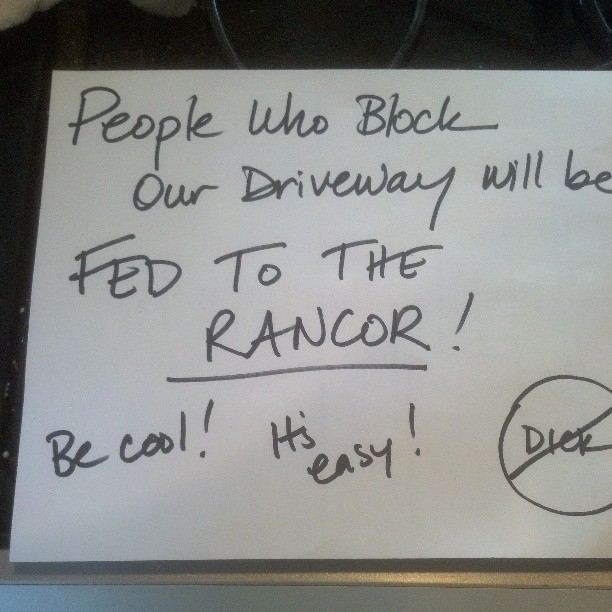 People Who Block
Our Driveway will be
FED TO THE
RANCOR!
Be cool! It's easy!
DICK